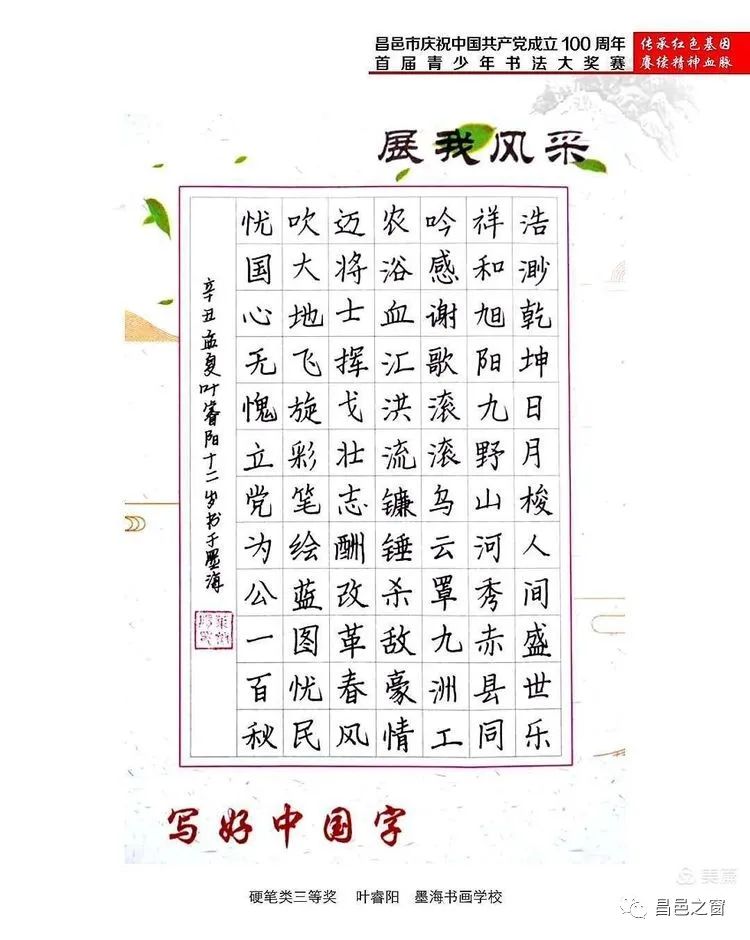 昌邑市庆祝中国共产党成立100周年
首届青少年书法大奖赛
传承红色基因
赓续精神血脉
展我风采
浩渺乾坤日月梭人间盛世乐
祥和旭阳九野山河秀赤县同
吟感谢歌滚滚乌云罩九洲工
农浴血汇洪流镰锤杀敌豪情
迈将士挥戈壮志酬改革春风
吹大地飞旋彩笔绘蓝图忧民
忧国心无愧立党为公一百秋
辛丑孟夏叶睿阳十二岁书于墨海
写好中国字
硬笔类三等奖 叶睿阳 墨海书画学校
美篇
昌邑之窗